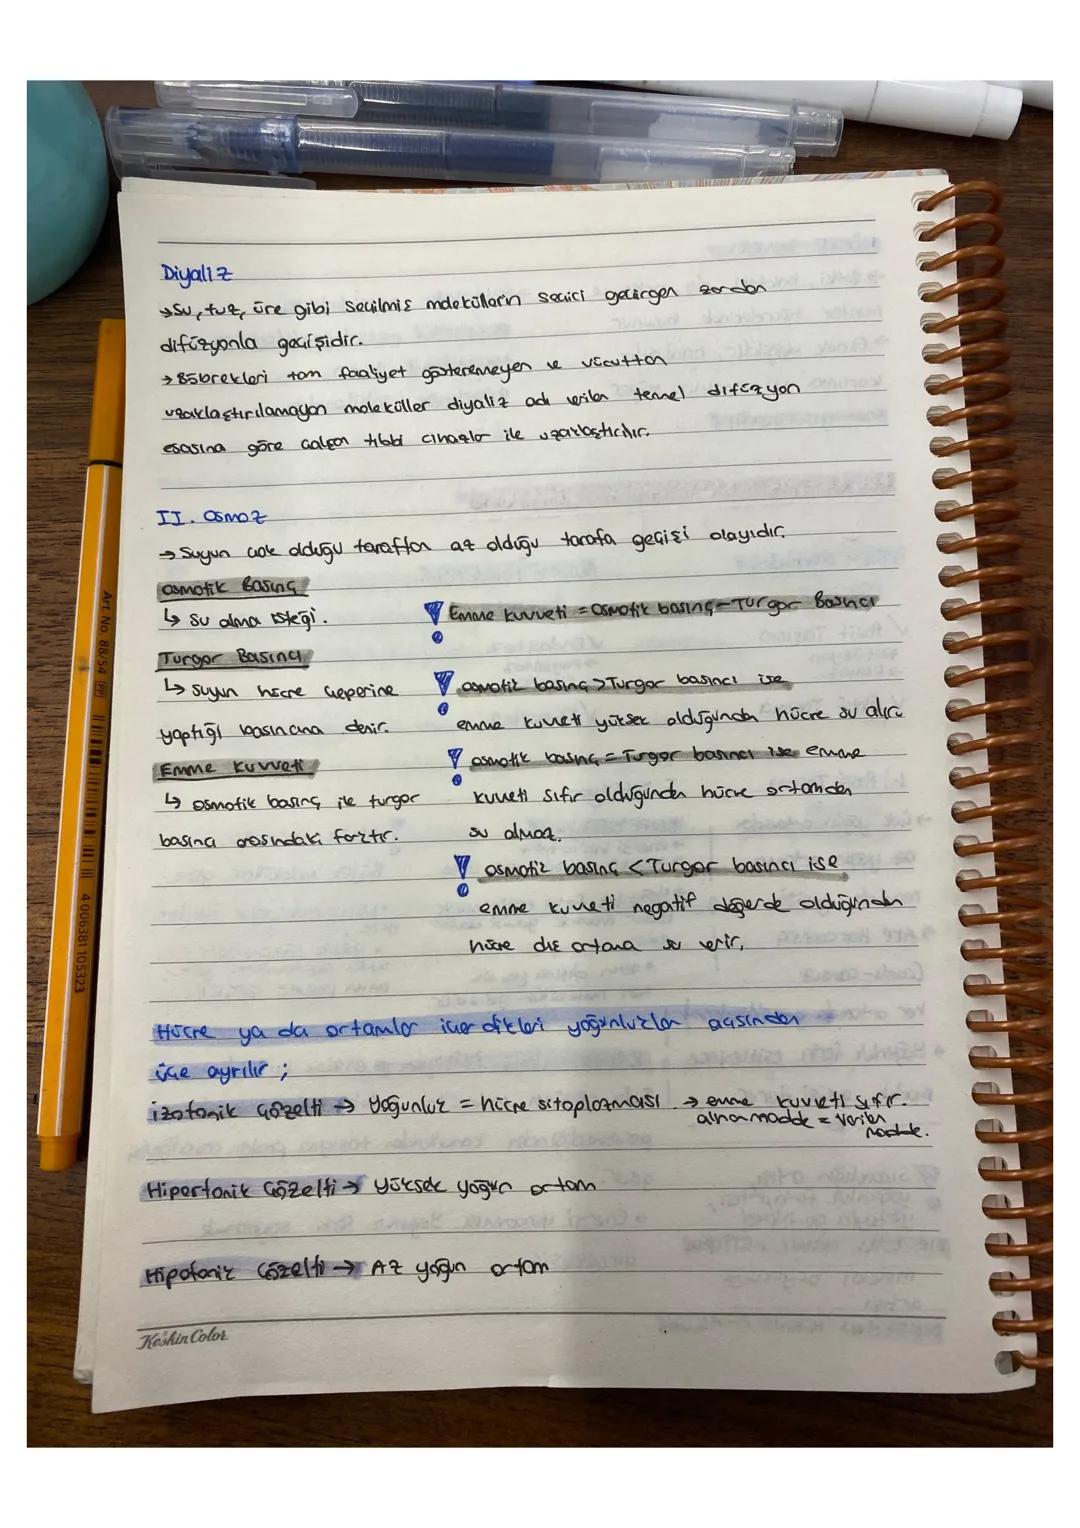 Diyaliz
→ Su, tuz, üre gibi seçilmiş moleküllerin seçici geçirgen zardan
difüzyonla geçişidir.
→ Böbrekleri tam faaliyet gösteremeyen ve vücuttan
uzaklaştırılamayan moleküller diyaliz adı verilen temel difüzyon
esasına göre çalışan tıbbi cihazlar ile uzaklaştırılır.
II. Osmoz
→ Suyun çok olduğu taraftan az olduğu tarafa geçişi olayıdır.
Osmotik Basınç
↳ Su alma isteği.
Emme kuvveti = Osmotik basınç - Turgor Basıncı
Turgor Basıncı
↳ Suyun hücre çeperine
yaptığı basıncına denir.
Emme Kuvveti
↳ Osmotik basınç ile turgor
basıncı arasındaki farktır.
osmotik basınç > Turgor basıncı ise
emme kuvveti yüksek olduğundan hücre su alır.
osmotik basınç = Turgor basıncı ise emme
kuvveti sıfır olduğundan hücre ortamdan
su almaz.
osmotik basınç < Turgor basıncı ise
emme kuvveti negatif değerde olduğundan
hücre dış ortama su verir.
Hücre ya da ortamlar içerdikleri yoğunluklar açısından
üçe ayrılır ;
izotonik çözelti → Yoğunluk = hücre sitoplazması → emme kuvveti sıfır.
alınan madde = verilen
madde.
Hipertonik Çözelti → Yüksek yoğun ortam
Hipotonik Çözelti → Az yoğun ortam
Keskin Color
Art. No. 88/54 PP
4 006381 105323